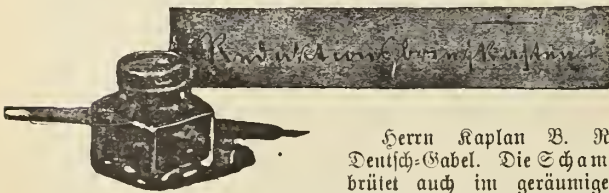 Redaktionsbriefkasten
Herrn Kaplan B. R
Deutsch-Gabel. Die Scham
brütet auch im geräumige